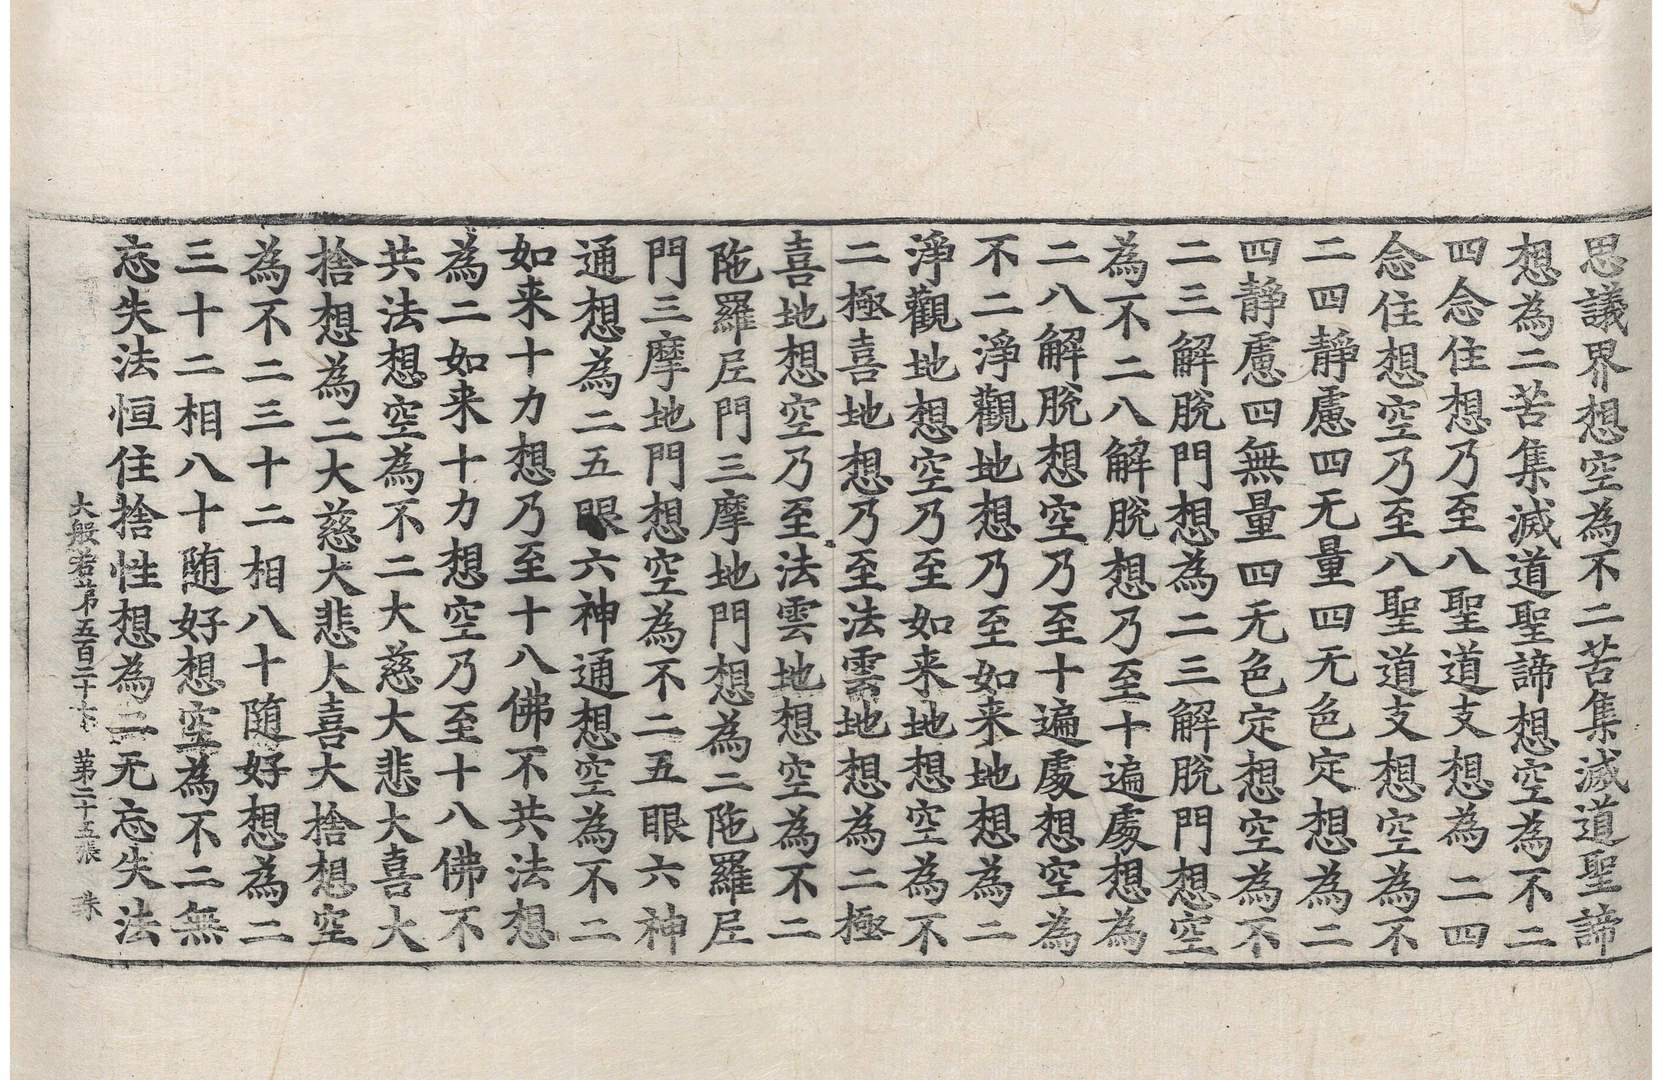 思議界想空為不二苦集滅道聖諦
想為二苦集滅道聖諦想空為不二
四念住想乃至八聖道支想為二四
念住想空乃至八聖道支想空為不
二四靜慮四无量四无色定想為二
四靜慮四無量四无色定想空為不
二三解脫門想為二三解脫門想空
為不二八解脫想乃至十遍處想為
二八解脫想空乃至十遍處想空為
不二淨觀地想乃至如来地想為二
淨觀地想空乃至如来地想空為不
二極喜地想乃至法雲地想為二極
喜地想空乃至法雲地想空為不二
陁羅尼門三摩地門想為二陁羅尼
門三摩地門想空為不二五眼六神
通想為二五眼六神通想空為不二
如来十力想乃至十八佛不共法想
為二如来十力想空乃至十八佛不
共法想空為不二大慈大悲大喜大
捨想為二大慈大悲大喜大捨想空
為不二三十二相八十随好想為二
三十二相八十随好想空為不二無
忘失法恒住捨性想為二无忘失法
大般若苐五百二十 苐二十五張 珠